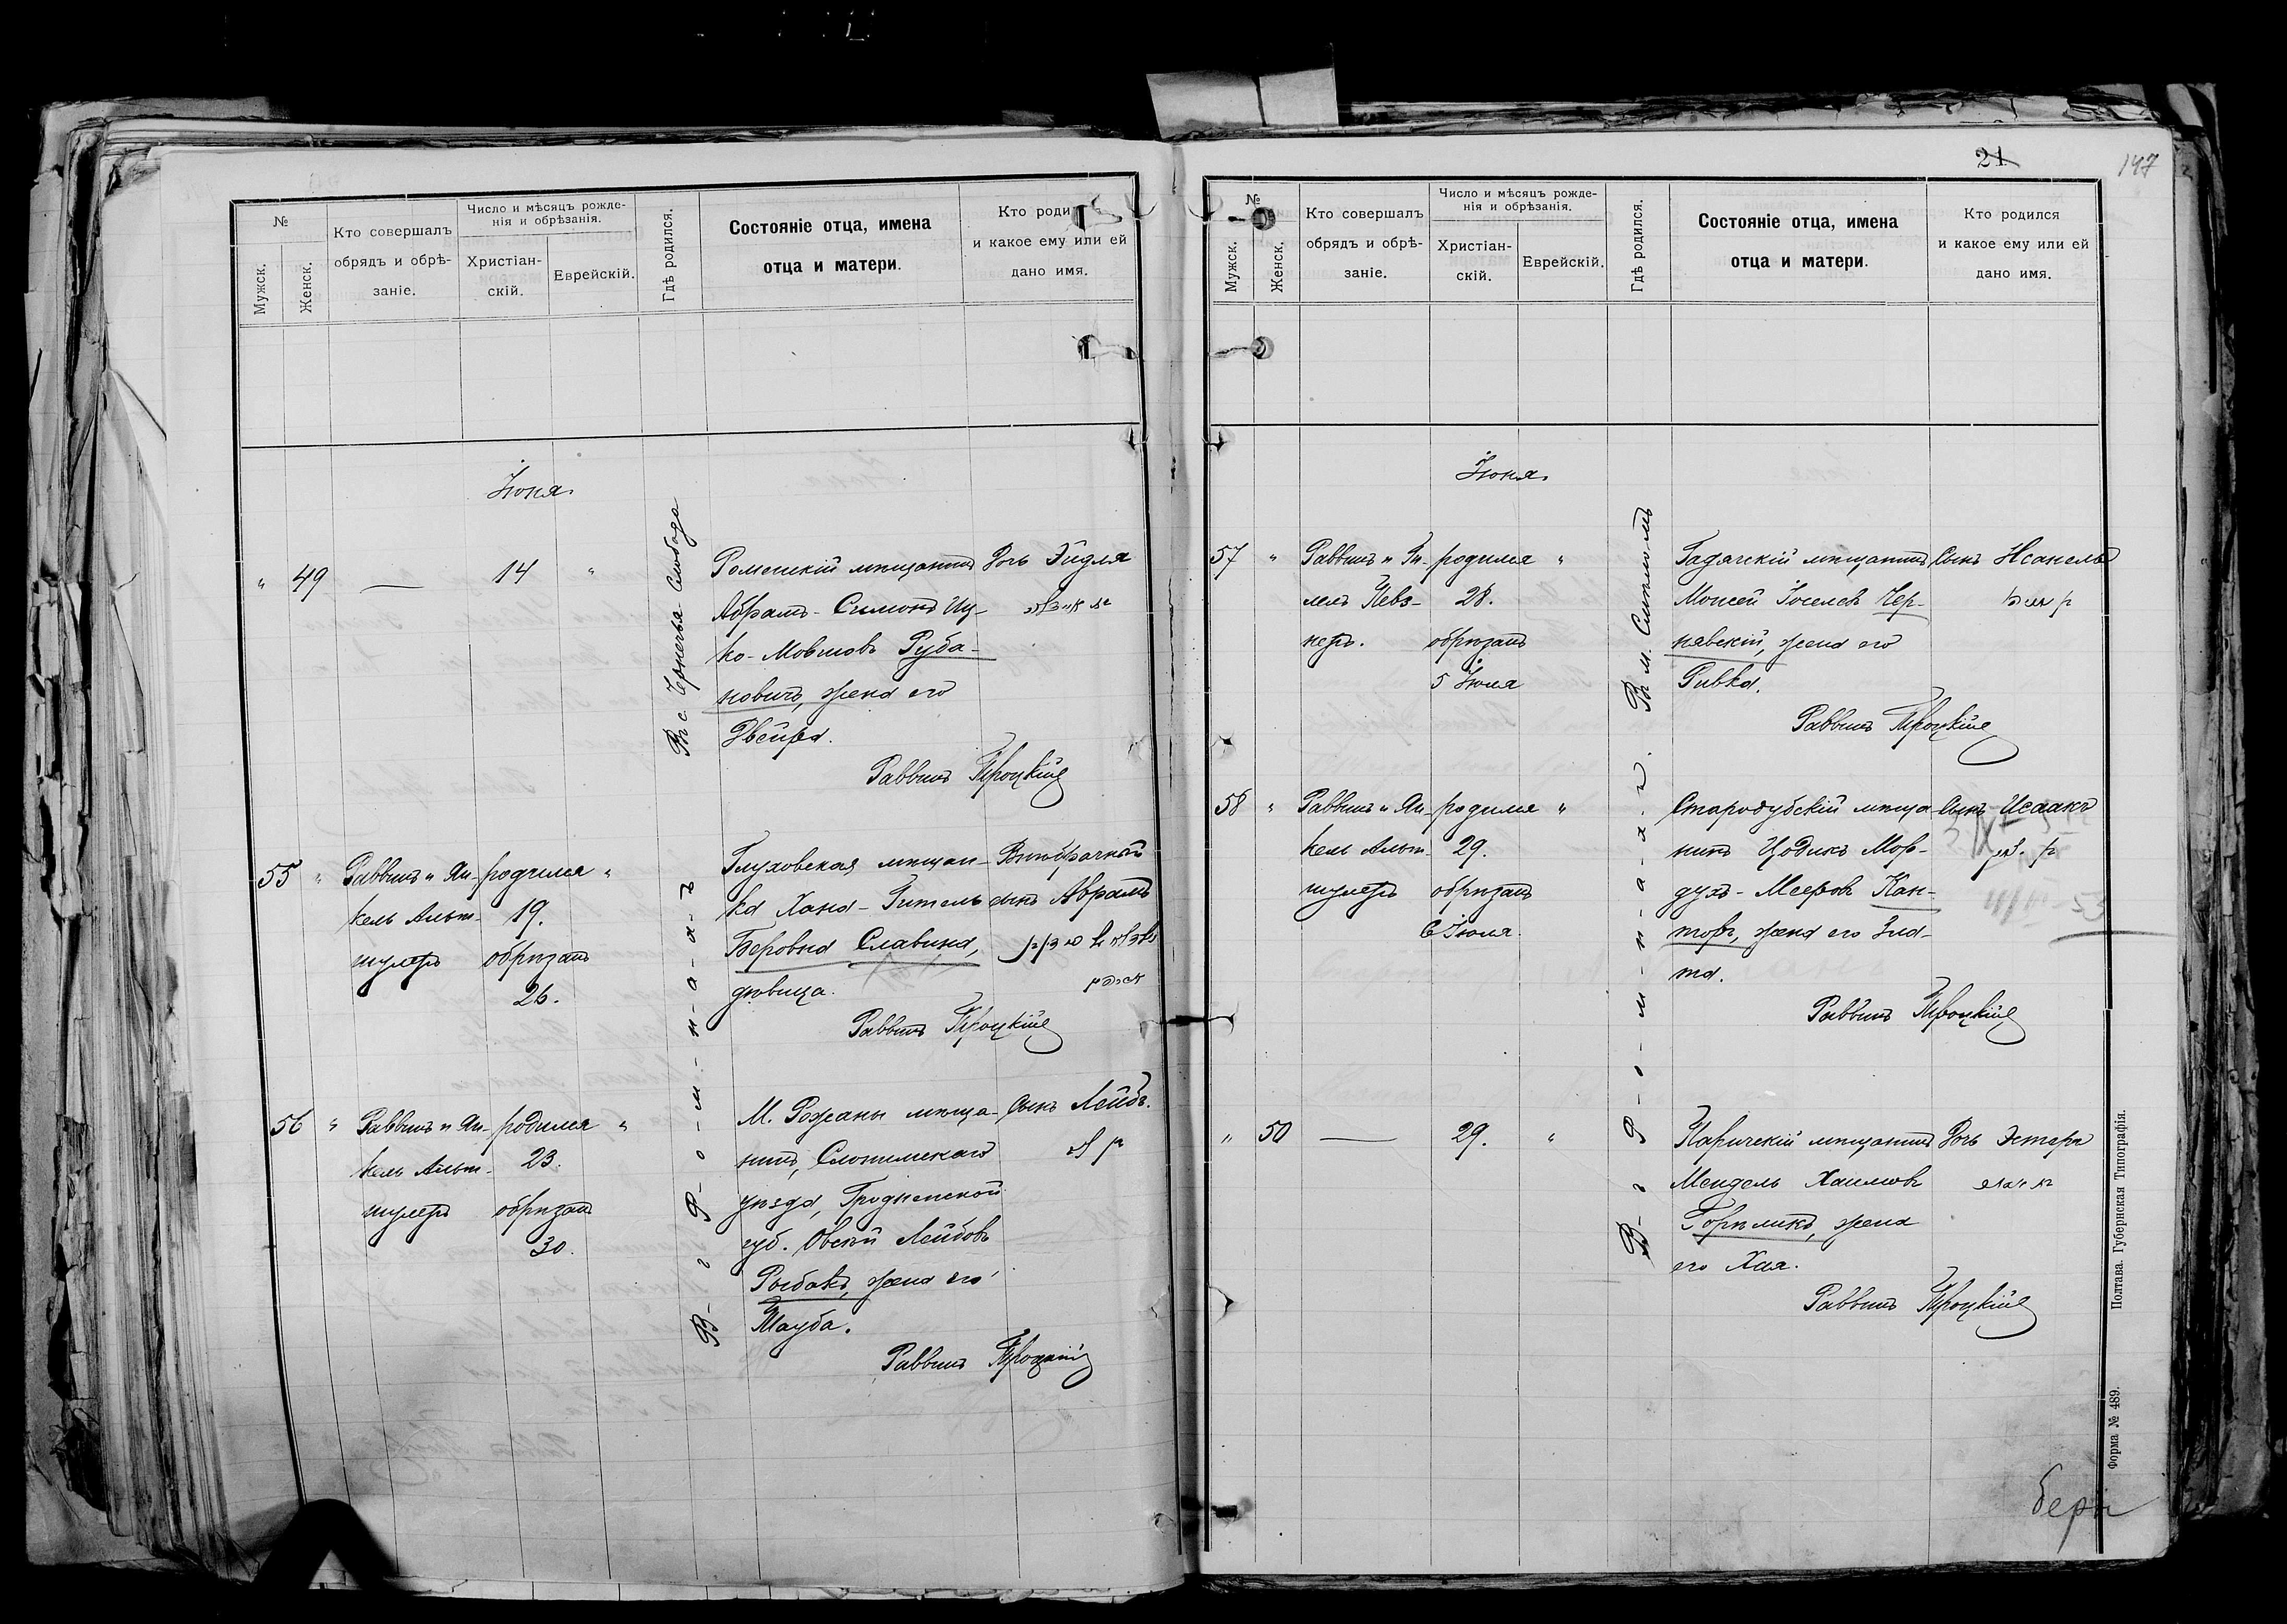 №
Мужск.
Женск.
Кто совершалъ
обрядъ и обрѣ-
заніе.
Число и мѣсяцъ рожде-
нія и обрѣзанія.
Христіан-
скій.
Еврейскій.
Гдѣ родился.
Состояніе отца, имена
отца и матери.
Кто роди
и какое ему или ей
дано имя.
Іюня.
" 49 — 14 "
Въ с. Слобода
Роменскій мѣщанинъ
Абрамъ-Симонъ Иц-
ко-Мовшовъ Руба-
новичъ, жена его
Двейра.
Дочь Эйдля
Раввинъ Троцкій
55 "
Раввинъ и Ян-
кель Альт-
шулеръ
родился "
19.
обрѣзанъ
26.
Глуховская мѣщан-
ка Хана-Гитель
Беровна Славина,
дѣвица.
Внѣбрачный
сынъ Абрамъ
Раввинъ Троцкій
56 "
Раввинъ и Ян-
кель Альт-
шулеръ
родился "
23.
обрѣзанъ
30.
В-г Р-о-м-н-а-х-ъ
М. Рожаны мѣща-
нинъ, Слонимскаго
уѣзда, Гродненской
губ. Овсей Лейбовъ
Рыбакъ, жена его
Тауба.
Сынъ Лейбъ.
Раввинъ Троцкій
21
147
№
Мужск.
Женск.
Кто совершалъ
обрядъ и обрѣ-
заніе.
Число и мѣсяцъ рожде-
нія и обрѣзанія.
Христіан-
скій.
Еврейскій.
Гдѣ родился.
Состояніе отца, имена
отца и матери.
Кто родился
и какое ему или ей
дано имя.
Іюня.
57 "
Раввинъ и
Невз-
неръ.
родился "
28.
обрѣзанъ
5 Іюля
Въ м.
Гадячскій мѣщанинъ
Моисей Іоселевъ Чер-
нявскій, жена его
Ривка.
Сынъ
Раввинъ Троцкій
58 "
Раввинъ и Ян-
кель Альт-
шулеръ
родился "
29.
обрѣзанъ
6 Іюля.
Стародубскій мѣща-
нинъ Цодикъ Мор-
духъ-Мееровъ Кан-
торъ, жена его Зла-
та.
Сынъ Исаакъ
Раввинъ Троцкій
" 50 — 29. "
В-г Р-о-м-н-а-х-ъ.
Паричскій мѣщанинъ
Мендель Хаимовъ
Горѣликъ, жена
его Хая.
Дочь Эстеръ
Раввинъ Троцкій
Полтава. Губернская Типографія.
Форма № 489.